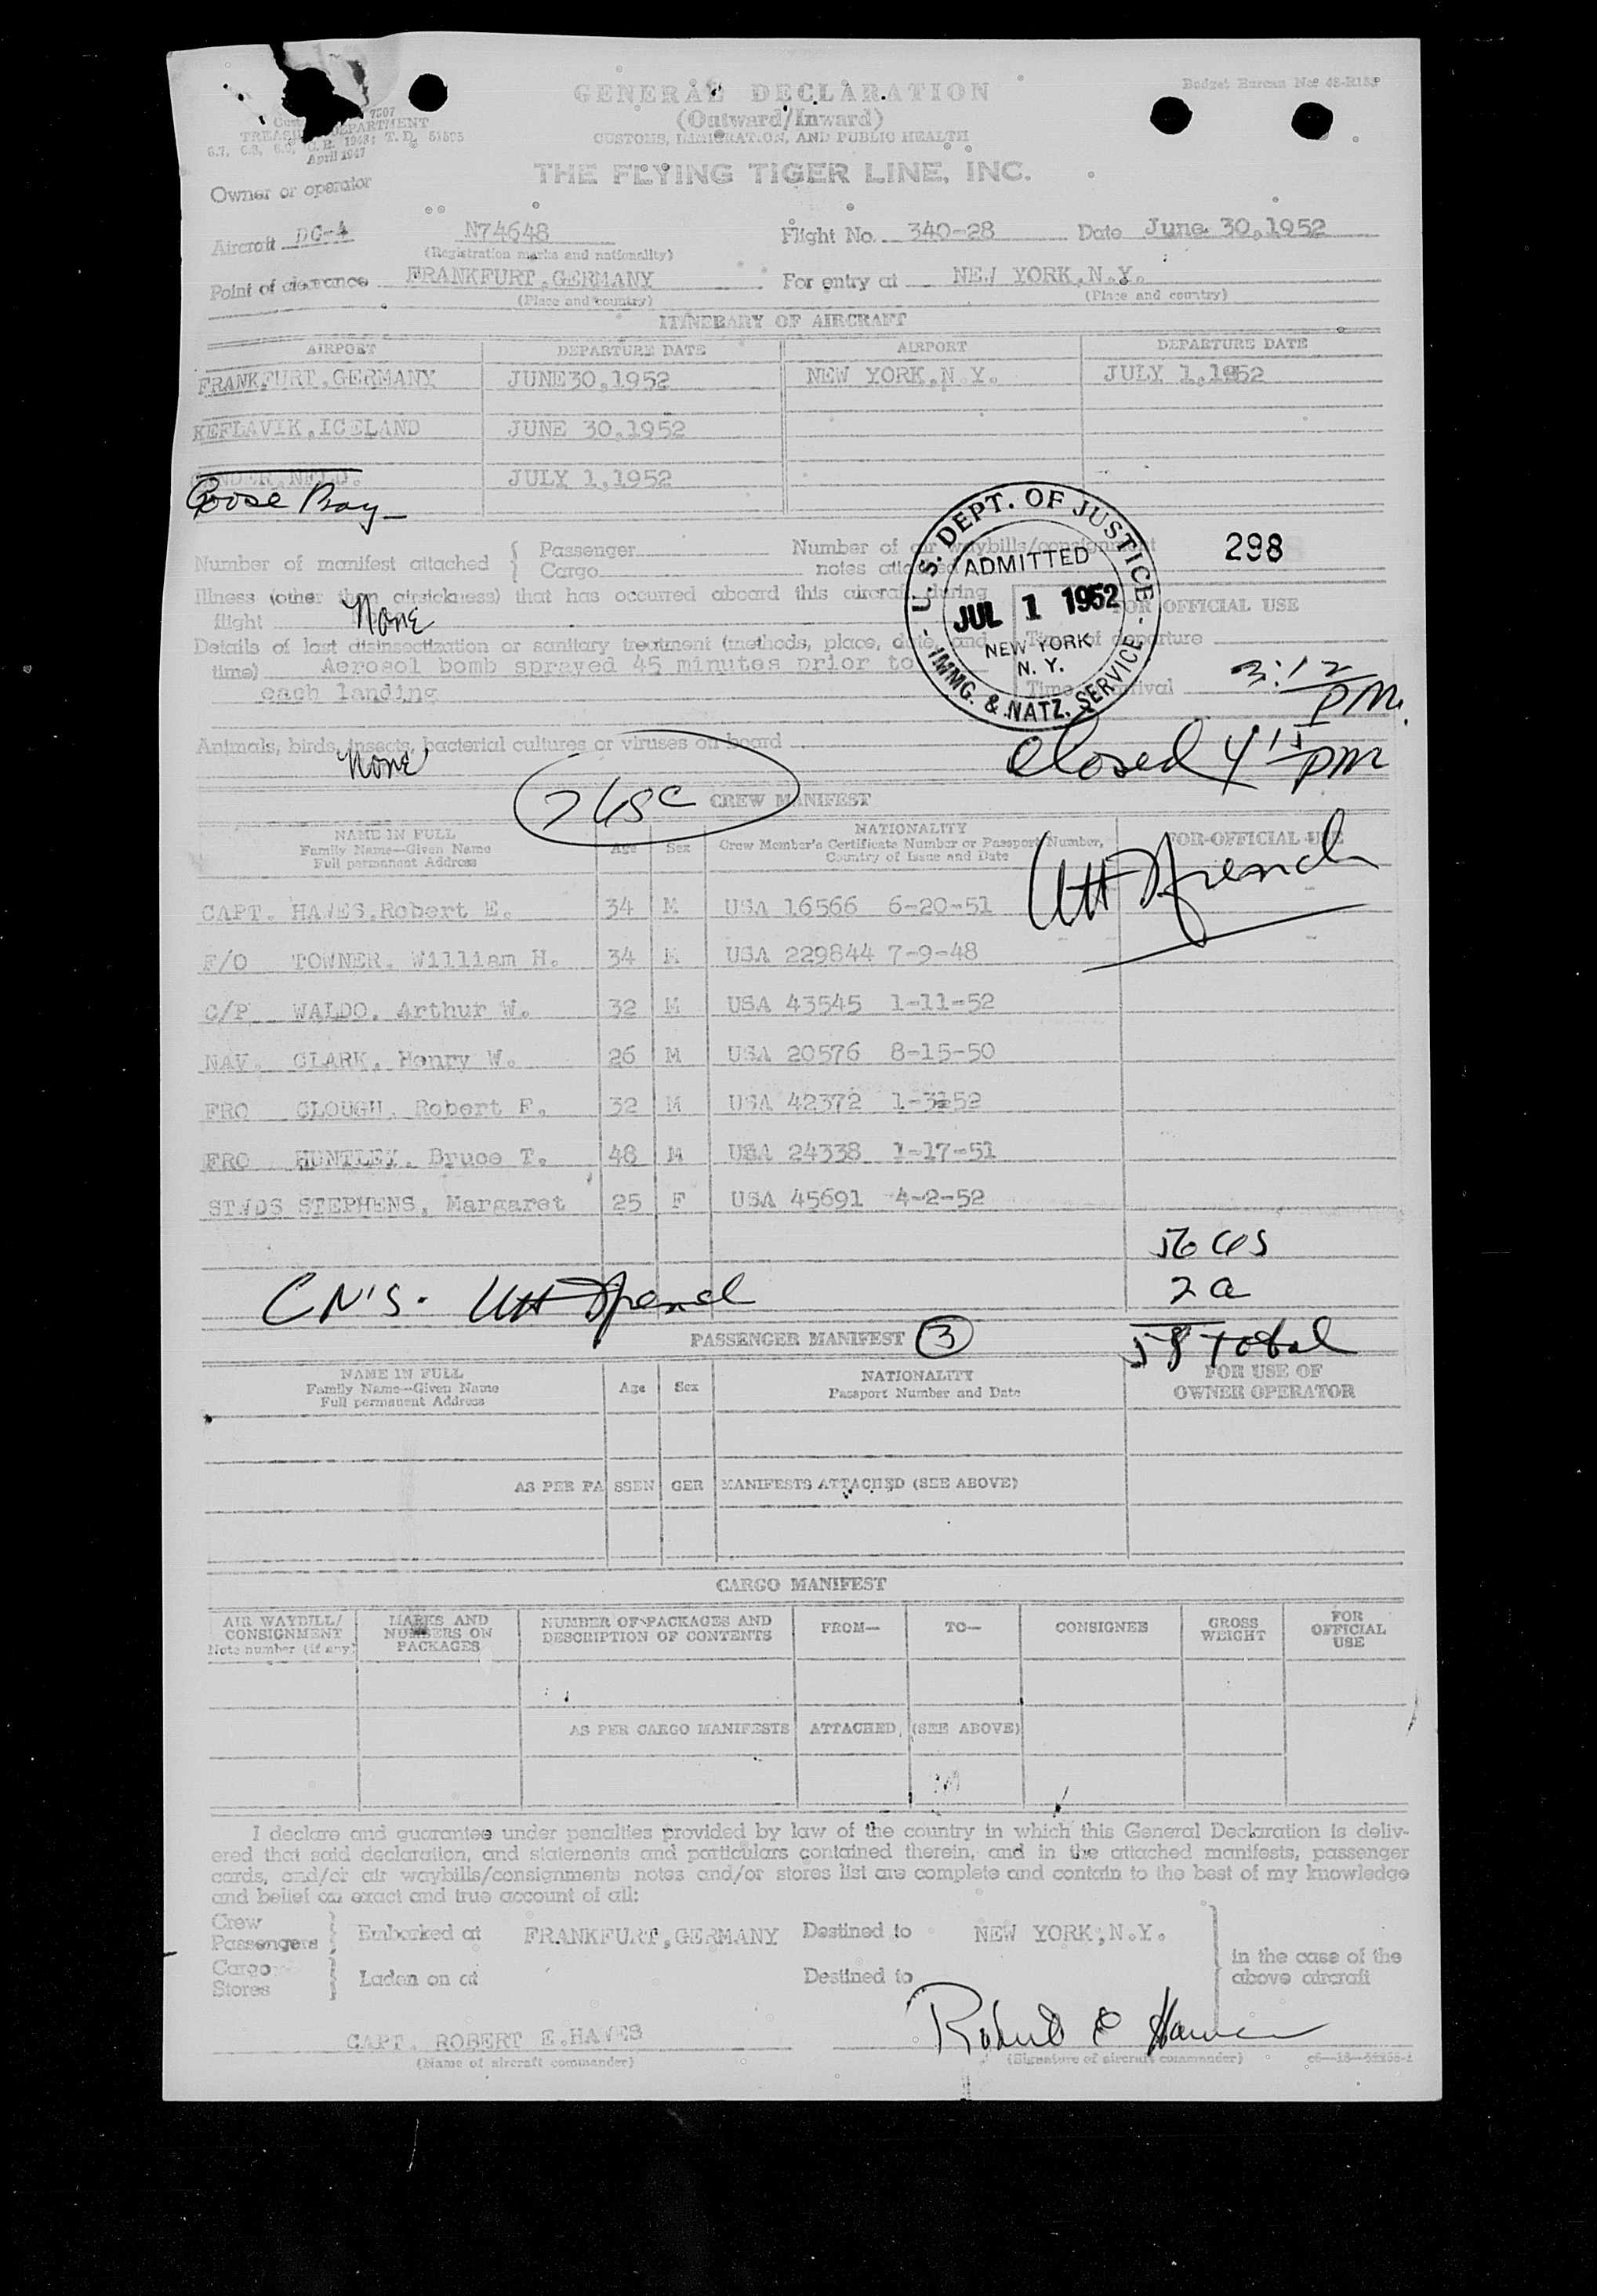 GENERAL DECLARATION
(Outward/Inward)
CUSTOMS, IMMIGRATION, AND PUBLIC HEALTH
Budget Bureau No.
7507
TREASURY DEPARTMENT
April 1947
THE FLYING TIGER LINE, INC.
Owner or operator
Aircraft DC-4 N74648 Flight No. 340-28 Date June 30,1952
(Registration marks and nationality)
Point of clearance FRANKFURT,GERMANY For entry at NEW YORK,N.Y.
(Place and country) (Place and country)
ITINERARY OF AIRCRAFT
AIRPORT DEPARTURE DATE AIRPORT DEPARTURE DATE
FRANKFURT,GERMANY JUNE30,1952 NEW YORK,N.Y. JULY 1,1952
KEFLAVIK,ICELAND JUNE 30,1952
GANDER,NFLD. JULY 1,1952
Goose Bay
Number of manifest attached { Passenger Number of air waybills/consignment 298
Cargo notes attached
Illness (other than airsickness) that has occurred aboard this aircraft during
flight None
FOR OFFICIAL USE
Details of last disinsectization or sanitary treatment (methods, place, date, and
time) Aerosol bomb sprayed 45 minutes prior to
each landing
Time of departure
Time of arrival 3:12 PM.
U.S. DEPT. OF JUSTICE
ADMITTED
JUL 1 1952
NEW YORK
N. Y.
IMMG. & NATZ. SERVICE
Animals, birds, insects, bacterial cultures or viruses on board
None
Closed 4 15 PM
CREW MANIFEST
NAME IN FULL
Family Name—Given Name
Full permanent Address
Age Sex
NATIONALITY
Crew Member's Certificate Number or Passport Number,
Country of Issue and Date
FOR OFFICIAL USE
CAPT. HAWES,Robert E. 34 M USA 16566 6-20-51
F/O TOWNER, William H. 34 M USA 229844 7-9-48
C/P WALDO, Arthur W. 32 M USA 43545 1-11-52
NAV. CLARK, Henry W. 26 M USA 20576 8-15-50
FRO CLOUGH, Robert F. 32 M USA 42372 1-3152
FRO HUNTLEY, Bruce T. 48 M USA 24338 1-17-51
STWDS STEPHENS, Margaret 25 F USA 45691 4-2-52
56 CUS
2 a
58 Total
CN'S.
PASSENGER MANIFEST 3
NAME IN FULL
Family Name—Given Name
Full permanent Address
Age Sex
NATIONALITY
Passport Number and Date
FOR USE OF
OWNER OPERATOR
AS PER PASSENGER MANIFESTS ATTACHED (SEE ABOVE)
CARGO MANIFEST
AIR WAYBILL/
CONSIGNMENT
Note number (if any)
MARKS AND
NUMBERS ON
PACKAGES
NUMBER OF PACKAGES AND
DESCRIPTION OF CONTENTS
FROM— TO— CONSIGNEE
GROSS
WEIGHT
FOR
OFFICIAL
USE
AS PER CARGO MANIFESTS ATTACHED, (SEE ABOVE)
I declare and guarantee under penalties provided by law of the country in which this General Declaration is deliv-
ered that said declaration, and statements and particulars contained therein, and in the attached manifests, passenger
cards, and/or air waybills/consignments notes and/or stores list are complete and contain to the best of my knowledge
and belief an exact and true account of all:
Crew
Passengers } Embarked at FRANKFURT,GERMANY Destined to NEW YORK,N.Y.
Cargo
Stores } Laden on at Destined to
in the case of the
above aircraft
CAPT. ROBERT E.HAWES Robert E Hawes
(Name of aircraft commander) (Signature of aircraft commander)